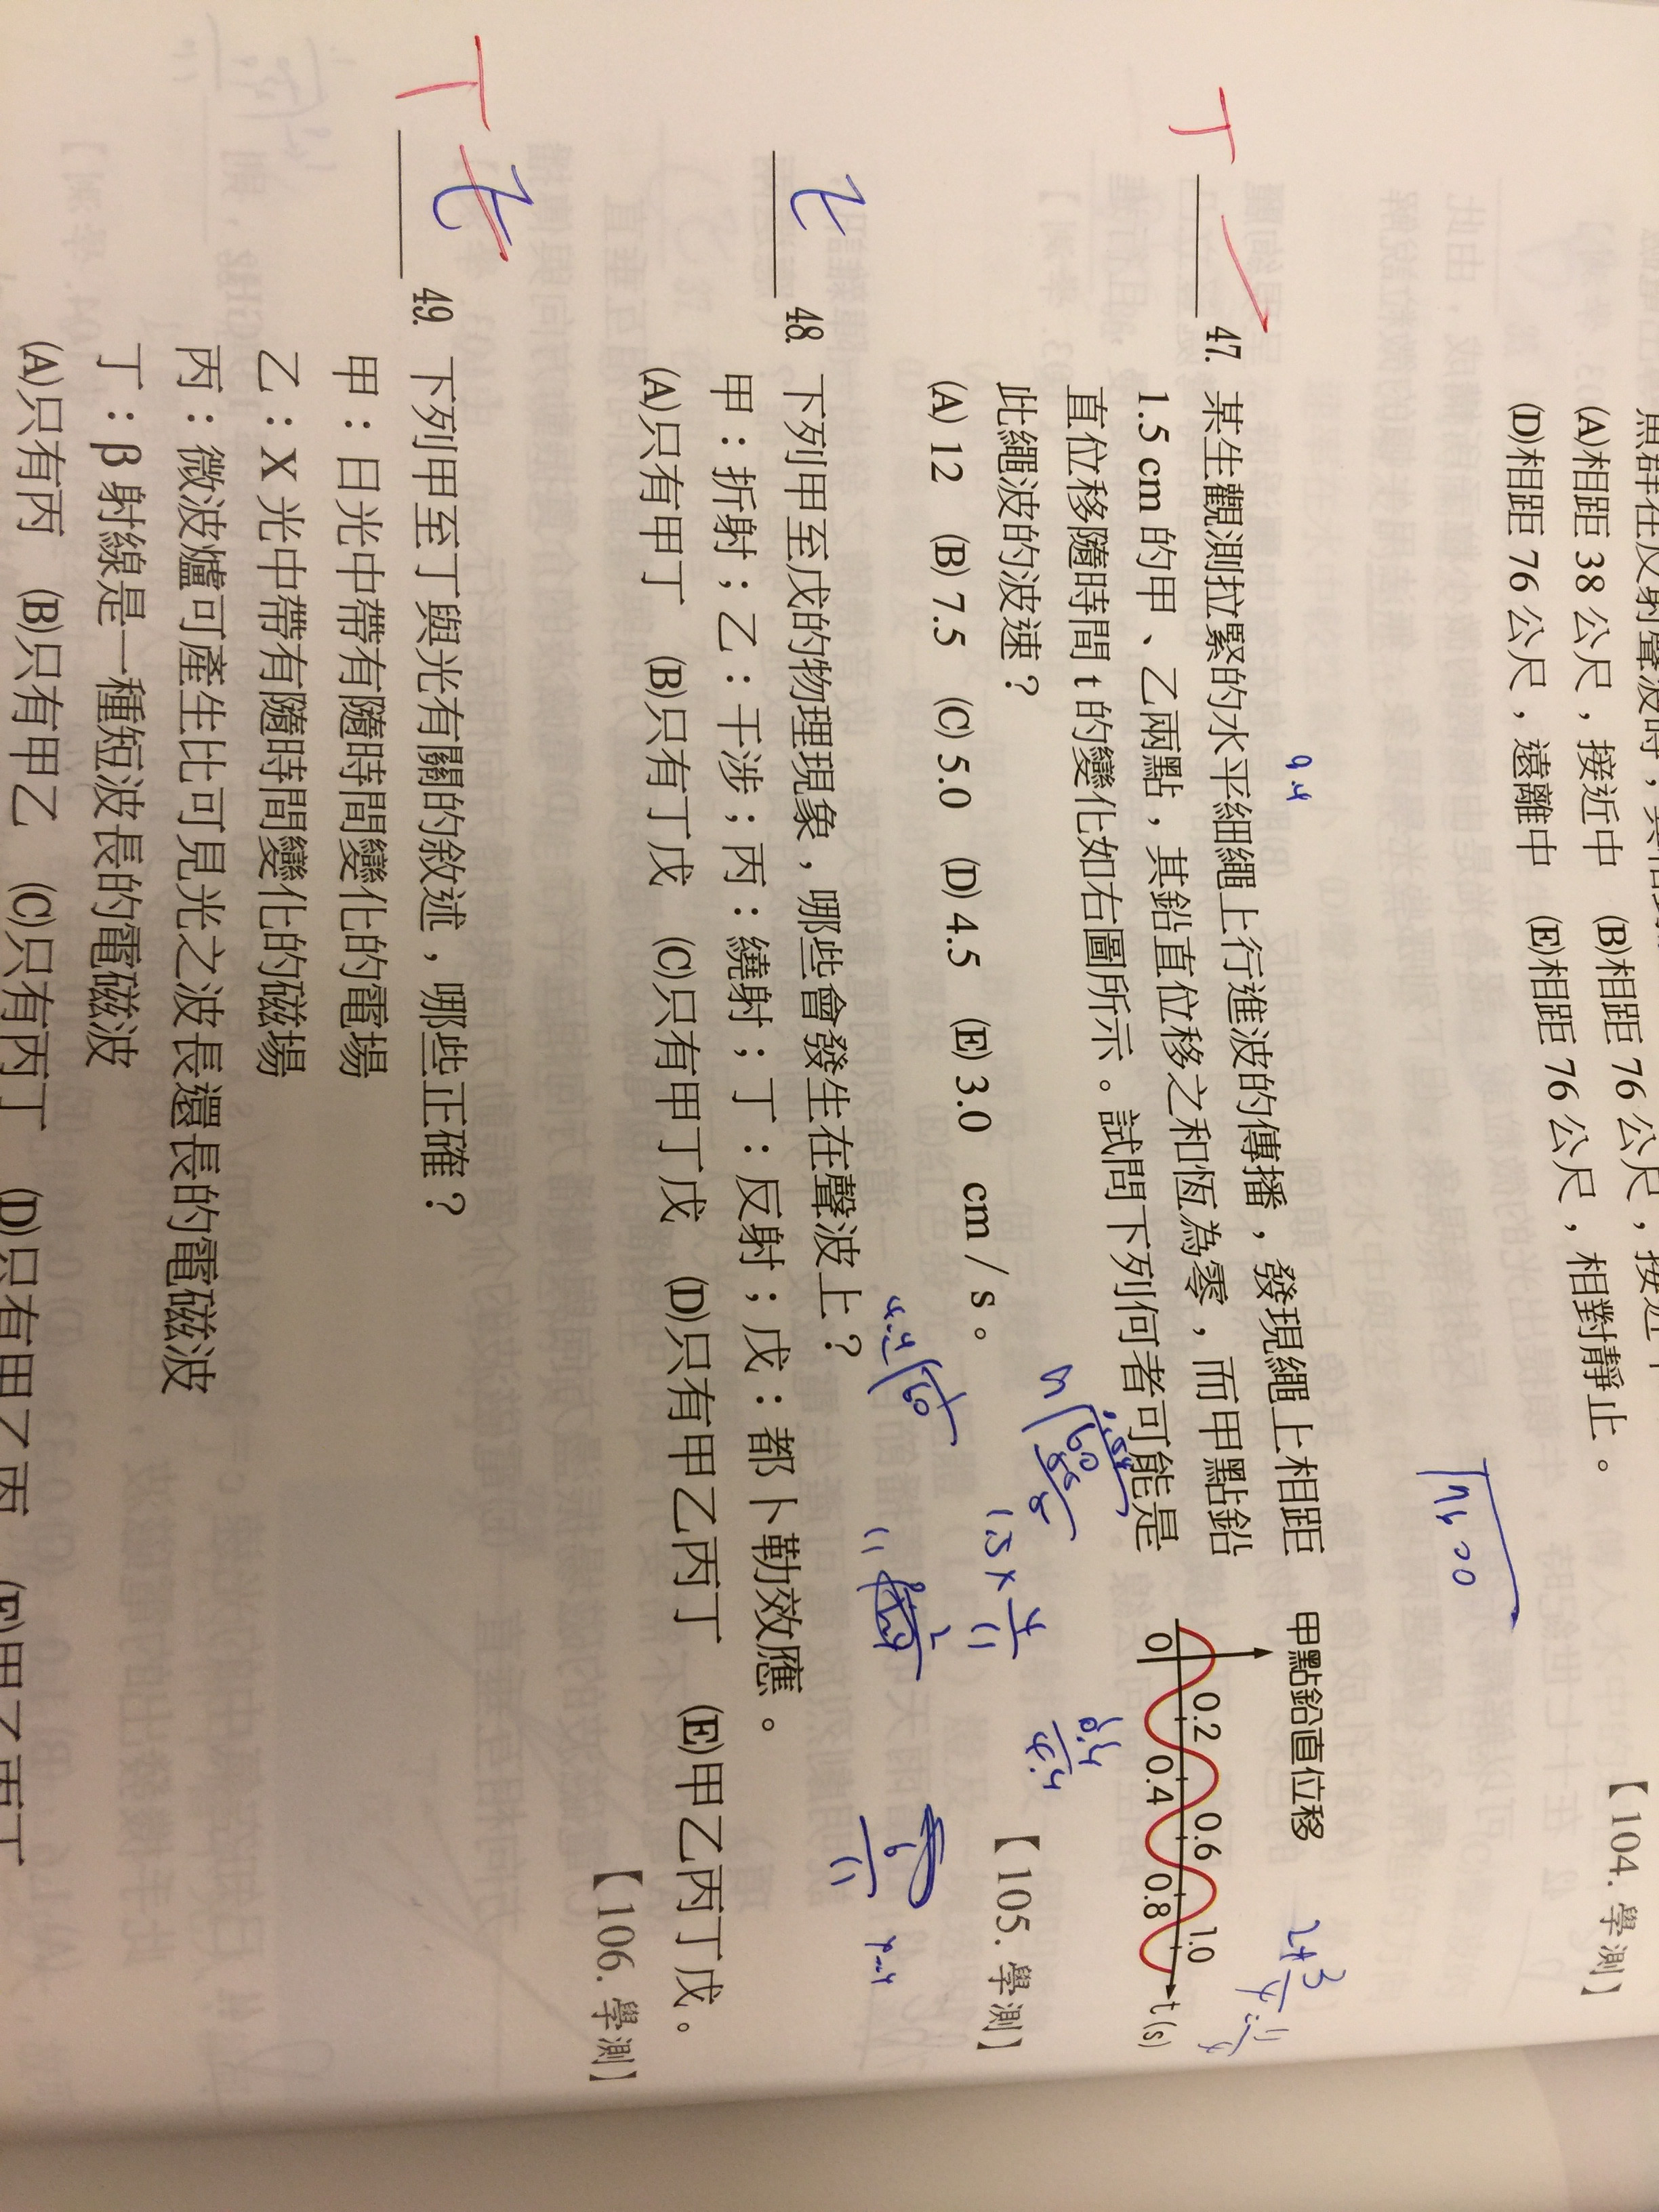 (A)相距 38 公尺，接近中　(B)相距 76 公尺，接近中
(D)相距 76 公尺，遠離中　(E)相距 76 公尺，相對靜止。
【104. 學測】
47. 某生觀測拉緊的水平細繩上行進波的傳播，發現繩上相距
1.5 cm 的甲、乙兩點，其鉛直位移之和恆為零，而甲點鉛
直位移隨時間 t 的變化如右圖所示。試問下列何者可能是
此繩波的波速？
(A) 12　(B) 7.5　(C) 5.0　(D) 4.5　(E) 3.0　cm / s。
【105. 學測】
甲點鉛直位移
0 0.2 0.4 0.6 0.8 1.0 t (s)
48. 下列甲至戊的物理現象，哪些會發生在聲波上？
甲：折射；乙：干涉；丙：繞射；丁：反射；戊：都卜勒效應。
(A)只有甲丁　(B)只有丁戊　(C)只有甲丁戊　(D)只有甲乙丙丁　(E)甲乙丙丁戊。
【106. 學測】
49. 下列甲至丁與光有關的敘述，哪些正確？
甲：日光中帶有隨時間變化的電場
乙：X 光中帶有隨時間變化的磁場
丙：微波爐可產生比可見光之波長還長的電磁波
丁：β 射線是一種短波長的電磁波
(A)只有丙　(B)只有甲乙　(C)只有丙丁　(D)只有甲乙丙　(E)甲乙丙丁